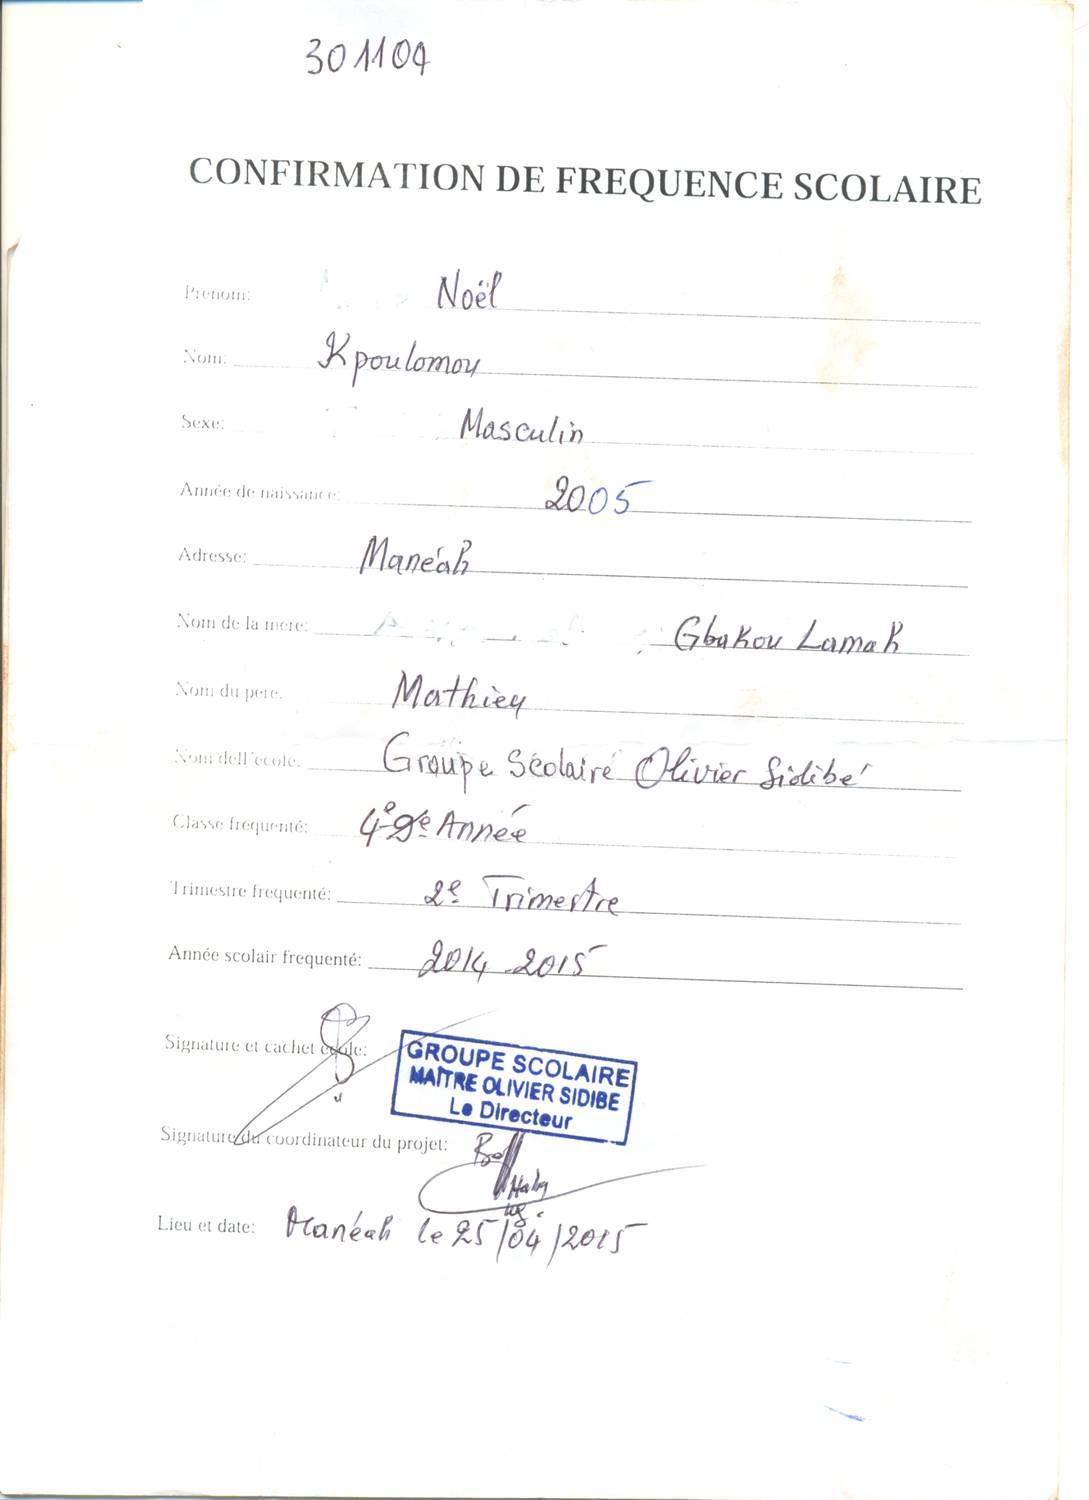 301104
CONFIRMATION DE FREQUENCE SCOLAIRE
Prenom: Noël
Nom: Kpoulomou
Sexe: Masculin
Année de naissance: 2005
Adresse: Manéah
Nom de la mere: Gbakou Lamah
Nom du pere. Mathieu
Nom dell'école. Groupe Scolaire Olivier Sidibé
Classe frequenté: 4e Année
Trimestre frequenté: 2e Trimestre
Année scolair frequenté: 2014-2015
Signature et cachet école:
GROUPE SCOLAIRE
MAÎTRE OLIVIER SIDIBE
Le Directeur
Signature du coordinateur du projet:
Lieu et date: Manéah le 25/04/2015